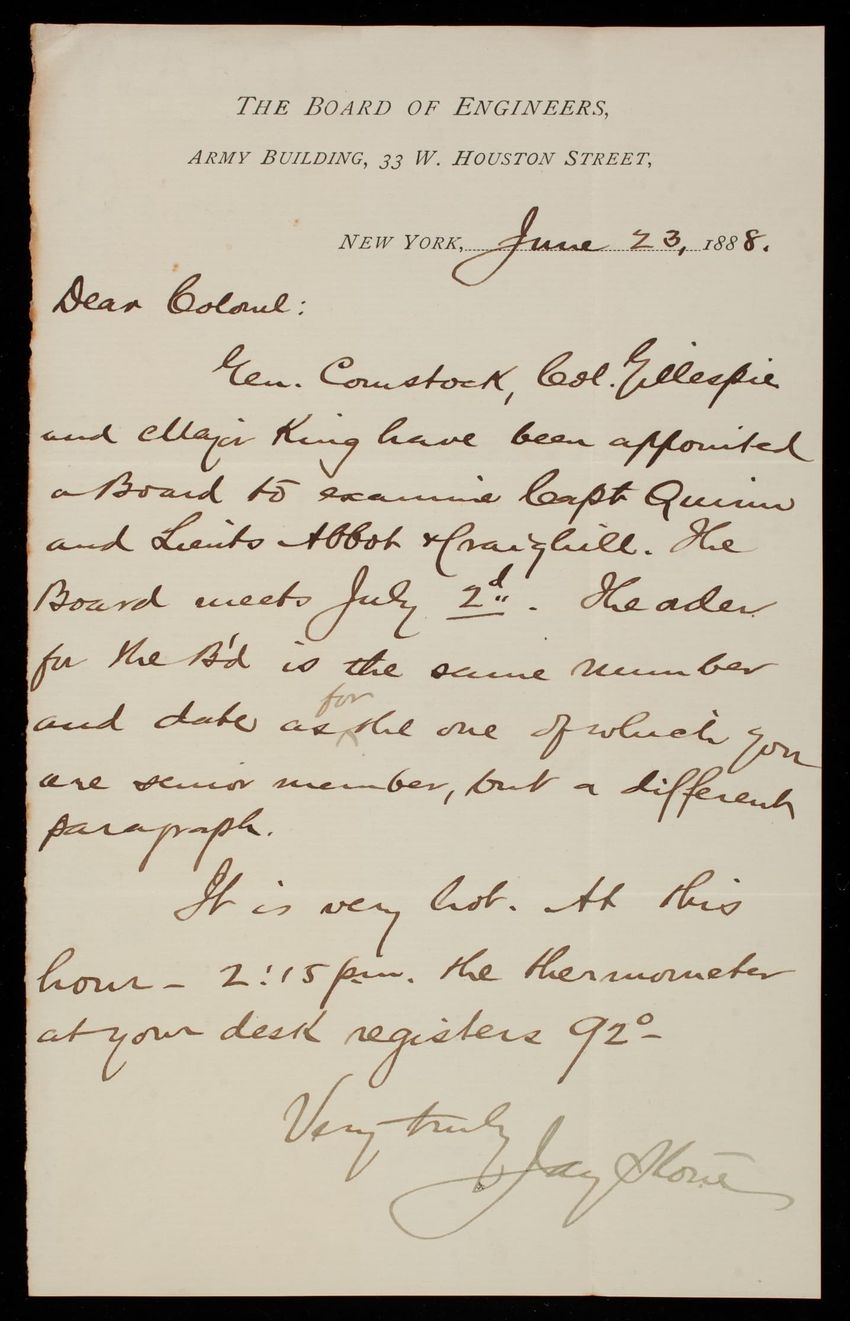 THE BOARD OF ENGINEERS,
ARMY BUILDING, 33 W. HOUSTON STREET,
NEW YORK, June 23, 1888.
Dear Colonel:
Gen. Comstock, Col. Gillespie
and Major King have been appointed
a Board to examine Capt Quinn
and Lieuts Abbot & Craighill. The
Board meets July 2d. The order
for the B'd is the same number
and date as for the one of which you
are senior member, but a different
paragraph.
It is very hot. At this
hour - 2:15 p.m. the thermometer
at your desk registers 92° -
Very truly
Jay Stone